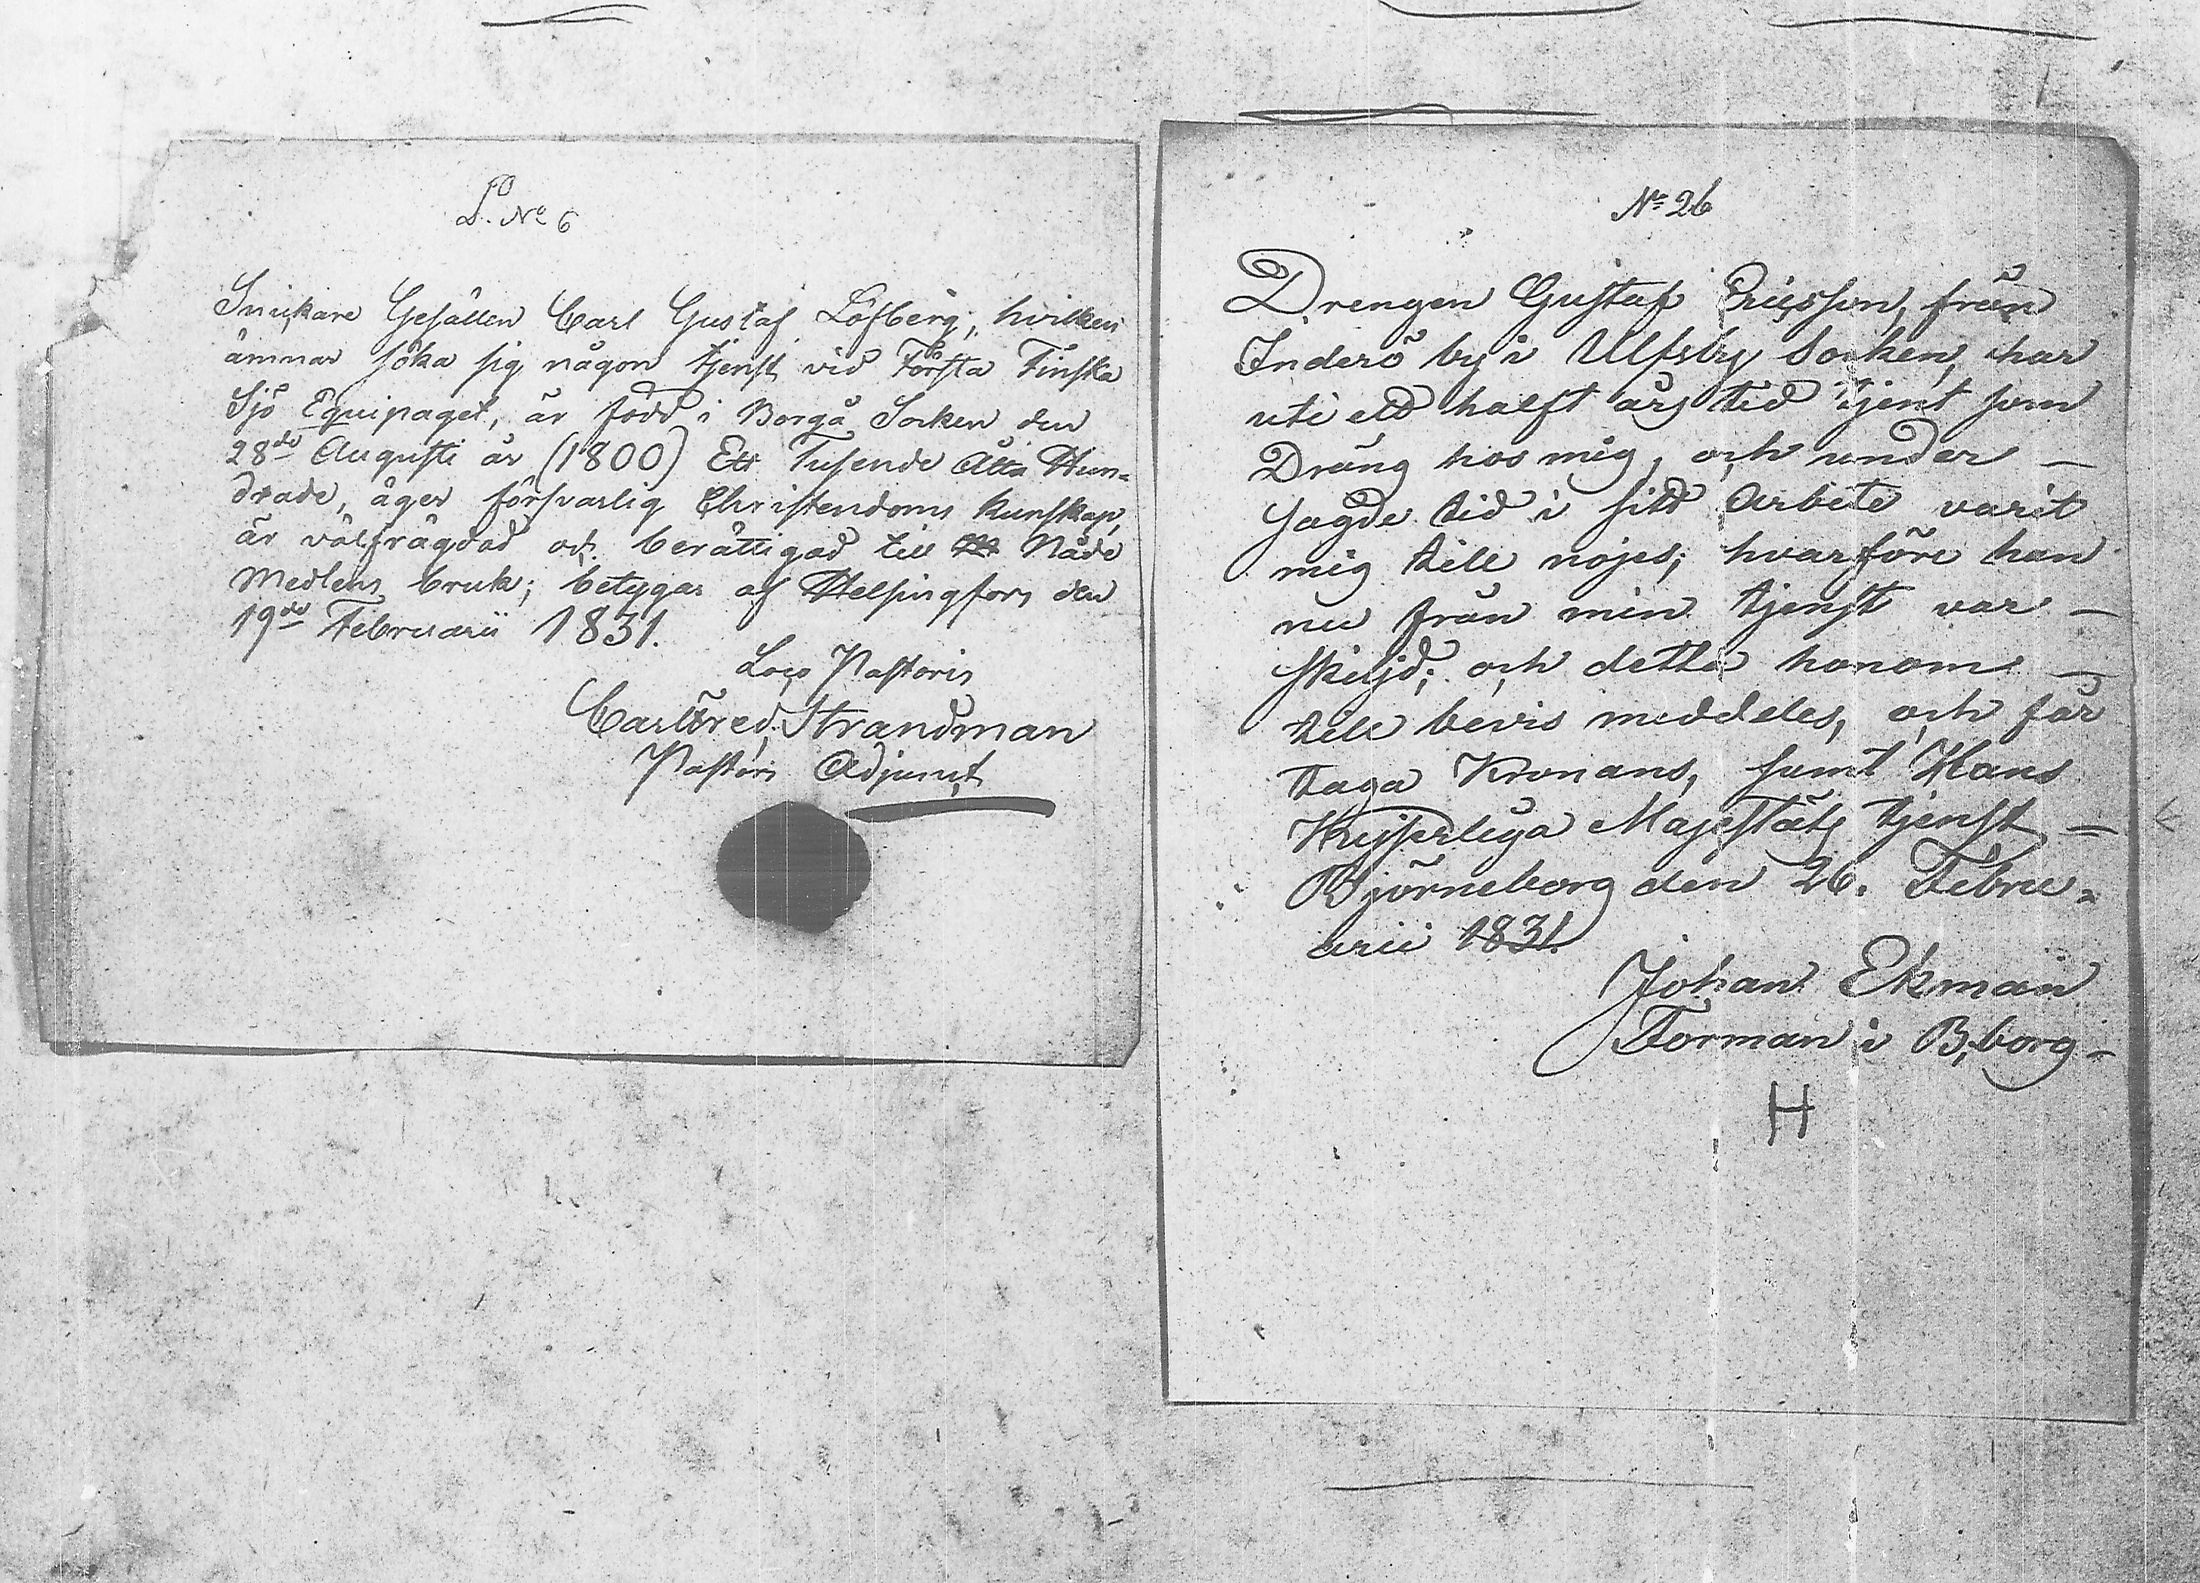 L. No 6
Snickare Gesällen Carl Gustaf Löfberg, hvilken
ämnar söka sig någon tjenst vid Första Finska
Sjö Equipaget, är född i Borgå Socken den
28de Augusti år (1800) Ett Tusende Åtta Hun-
drade, äger försvarlig Christendoms kunskap,
är välfrägdad och berättigad till Nåde
Medlens bruk; betygas af Helsingfors den
19de Februarii 1831.
Loco Pastoris
Carl Fred. Strandman
Pastors Adjunct
No 26
Drengen Gustaf Ericsson, från
Inderö by i Ulfsby Socken, har
uti ett halft års tid tjent som
Dräng hos mig, och under –
sagde tid i sitt arbete varit
mig till nöjes; hvarföre han
nu från min tjenst var –
skiljd; och detta honom –
till bevis meddeles, och får
taga Kronans, samt Hans
Kejserliga Majestäts tjenst –
Björneborg den 26. Febru-
arii 1831.
Johan Ekman
Forman i B,borg-
H